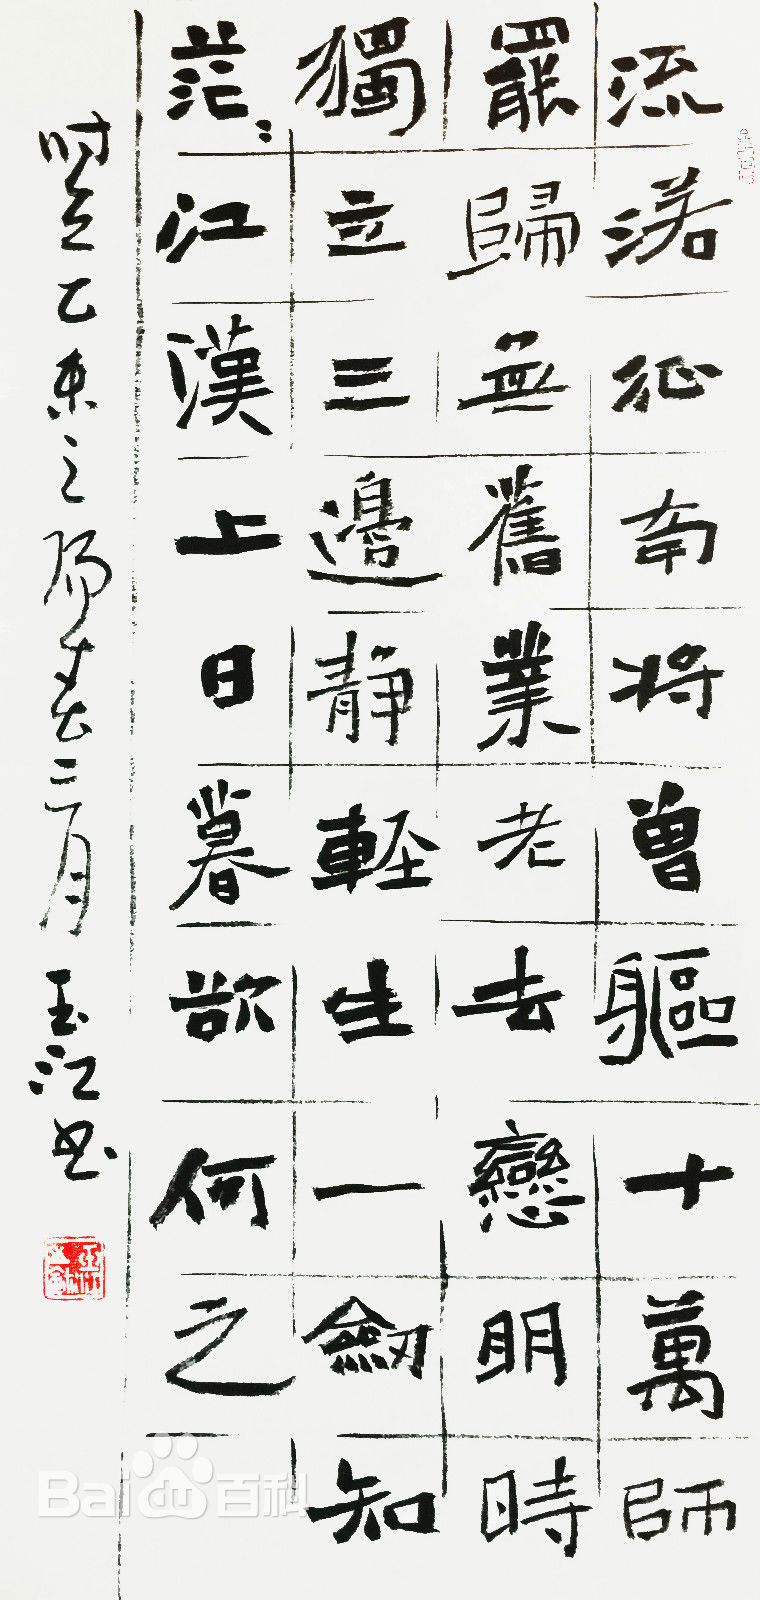 流落征南将曾軀十萬師
罷歸無舊業老去戀明時
獨立三邊靜輕生一劍知
茫：江漢上日暮欲何之
时在乙未之阳春三月玉江书
Baidu百科